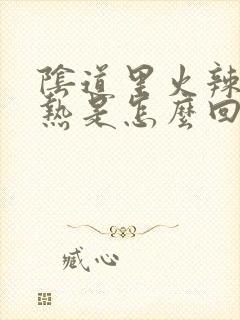 陰道里火辣
熱是怎麼回
臧心